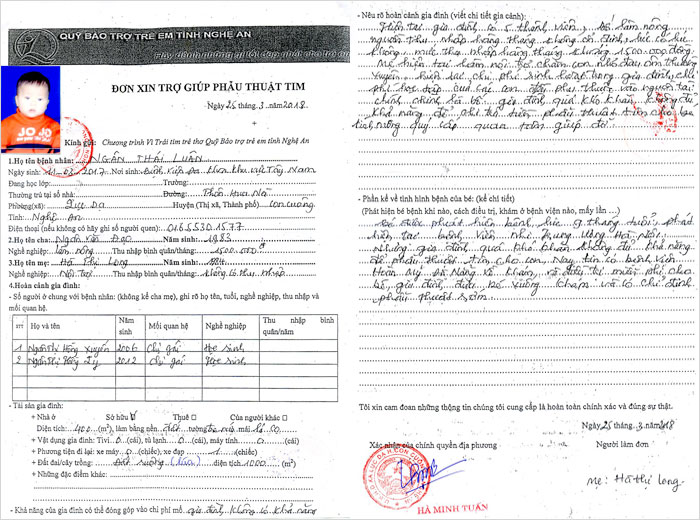 QUỸ BẢO TRỢ TRẺ EM TỈNH NGHỆ AN
ĐƠN XIN TRỢ GIÚP PHẪU THUẬT TIM
Ngày 25 tháng 3 năm 2018
Kính gửi: Chương trình Vì Trái tim trẻ thơ Quỹ Bảo trợ trẻ em tỉnh Nghệ An
1.Họ tên bệnh nhân: NGÂN THÁI LUÂN
Ngày sinh: 11-03-2017 Nơi sinh: Bệnh viện Đa khoa khu vực Tây Nam
Đang học lớp: Trường:
Thường trú tại số nhà: Đường: Thôn
Phường(xã): Lục Dạ Huyện (Thị xã, Thành phố) Con Cuông
Tỉnh: Nghệ An
Điện thoại (nếu không có hãy ghi số người quen): 01655301577
2.Họ tên cha: Ngân Văn Đạo Năm sinh: 1983
Nghề nghiệp: Làm nông Thu nhập bình quân/tháng: 1.500.000đ
3.Họ tên mẹ: Hà Thị Long Năm sinh: 1984
Nghề nghiệp: Nội trợ Thu nhập bình quân/tháng: Không có thu nhập
4.Hoàn cảnh gia đình:
- Số người ở chung với bệnh nhân: (không kể cha mẹ), ghi rõ họ tên, tuổi, nghề nghiệp, thu nhập và
mối quan hệ.
STT Họ và tên Năm sinh Mối quan hệ Nghề nghiệp Thu nhập bình quân/năm
1 Ngân Thị Hồng Xuyến 2006 Chị gái Học sinh
2 Ngân Thị 2012 Chị gái Học sinh
- Tài sản gia đình:
+ Nhà ở Sở hữu Thuê □ Của người khác □
Diện tích: 400 (m²), làm bằng nền đất tường mái
+ Vật dụng gia đình: Tivi 0 (cái), tủ lạnh 0 (cái), máy tính 0 (cái)
+ Phương tiện đi lại: xe máy 0 (chiếc), xe đạp 1 (chiếc)
+ Đất đai/cây trồng: Đất ruộng diện tích 1000 (m²)
+ Những đặc điểm khác:
- Khả năng của gia đình có thể đóng góp vào chi phí mổ: gia đình không có khả năng
- Nêu rõ hoàn cảnh gia đình (viết chi tiết gia cảnh):
Hiện tại gia đình có 5 thành viên, bố làm nông
nguồn thu nhập hàng tháng không ổn định, lúc có lúc
không, mức thu nhập hàng tháng khoảng 1500.000 đồng
Mẹ hiện tại làm nội trợ chăm con nhỏ đau ốm thường
xuyên, hiện tại chi phí sinh hoạt trong gia đình, chi
phí học tập của hai con đều phụ thuộc vào nguồn tài
chính chính là bố, gia đình quá khó khăn không đủ
khả năng để chi trả tiền phẫu thuật tim cho con
kính mong quý cấp quan tâm giúp đỡ
- Phần kể về tình hình bệnh của bé: (kể chi tiết)
(Phát hiện bé bệnh khi nào, cách điều trị, khám ở bệnh viện nào, mấy lần ...)
Bé được phát hiện bệnh lúc 9 tháng tuổi, phát
hiện tại bệnh viện nhi Trung ương Hà Nội.
Nhưng gia đình quá khó khăn không đủ khả năng
để phẫu thuật tim cho con. Nay tin có bệnh viện
Hoàn Mỹ Đà Nẵng về khám, và điều trị miễn phí cho
bé, gia đình đưa bé xuống khám và có chỉ định
phẫu thuật sớm.
Tôi xin cam đoan những thông tin chúng tôi cung cấp là hoàn toàn chính xác và đúng sự thật.
Ngày 25 tháng 3 năm 2018
Xác nhận của chính quyền địa phương Người làm đơn
HÀ MINH TUẤN
mẹ: Hà Thị Long